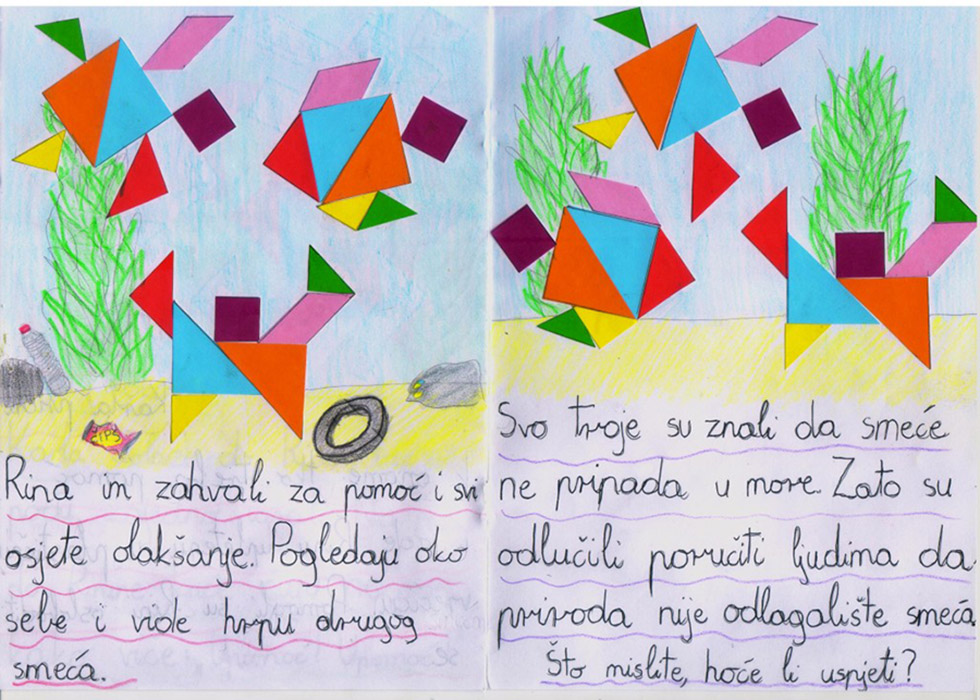 ČIPS
Rina im zahvali za pomoć i svi
osjete olakšanje. Pogledaju oko
sebe i vide hrpu drugog
smeća.
Svo troje su znali da smeće
ne pripada u more. Zato su
odlučili poručiti ljudima da
priroda nije odlagalište smeća
Što mislite, hoće li uspjeti?